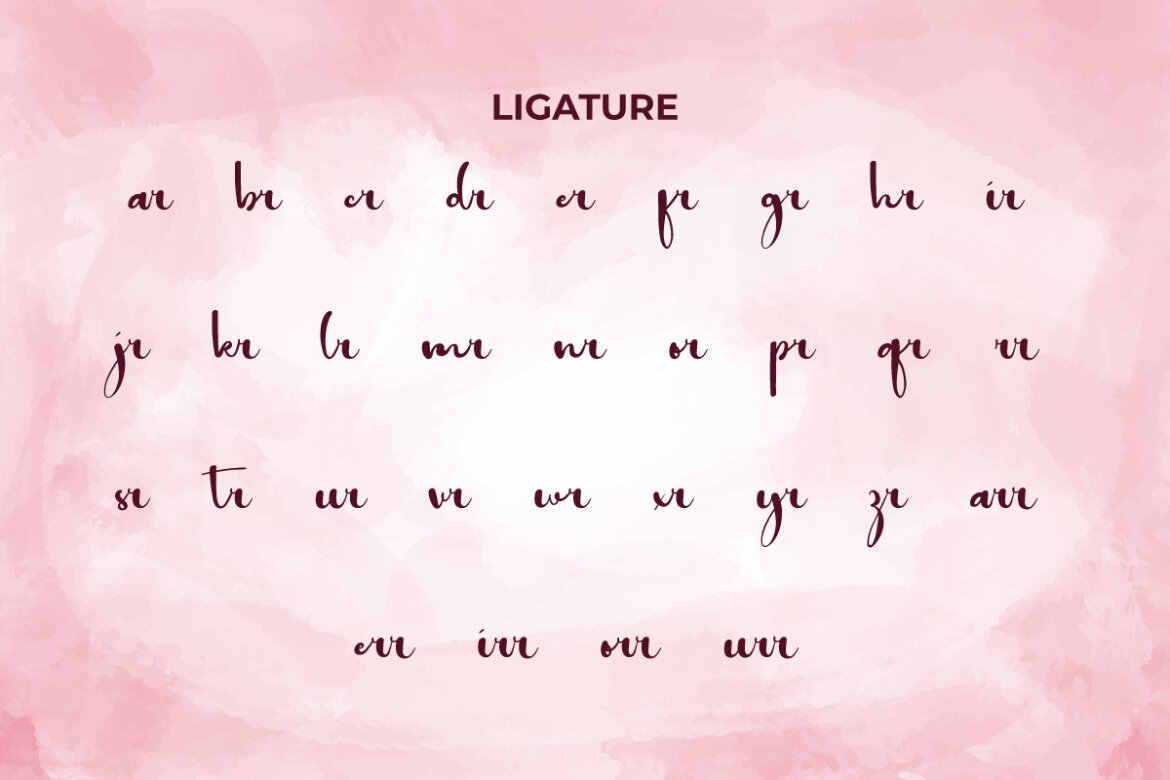 LIGATURE
ar br cr dr er fr gr hr ir
jr kr lr mr nr or pr qr rr
sr tr ur vr wr xr yr zr arr
err irr orr urr